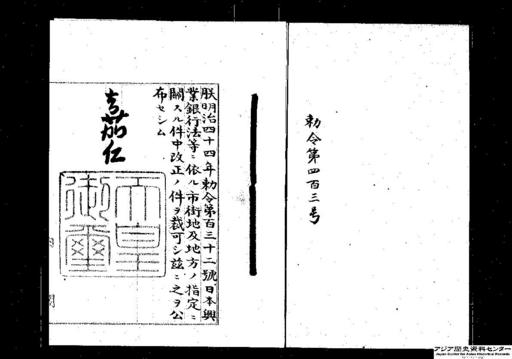 勅令第四百三号
朕明治四十四年勅令第百三十二號日本興
業銀行法等ニ依ル市街地及地方ノ指定ニ
關スル件中改正ノ件ヲ裁可シ茲ニ之ヲ公
布セシム
嘉仁
天皇
御璽
アジア歴史資料センター
Japan Center for Asian Historical Records